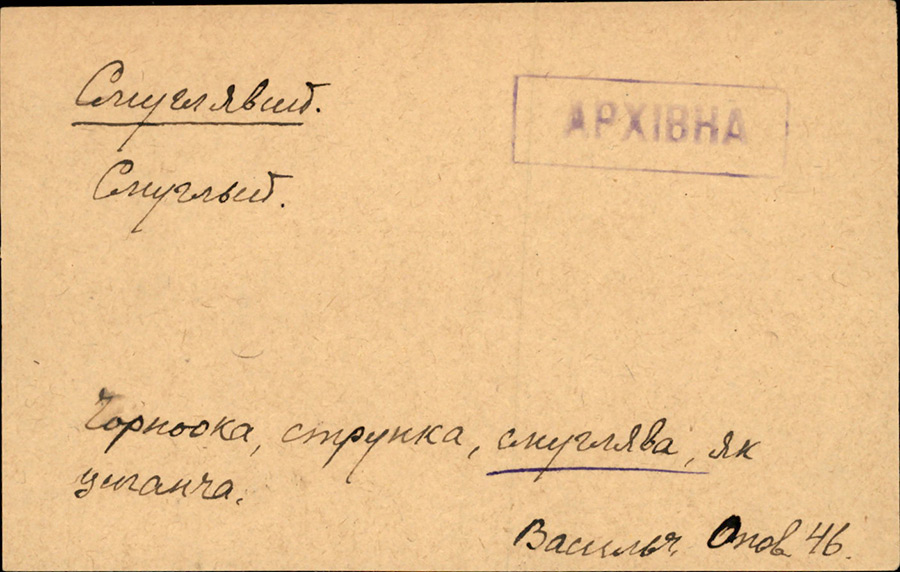 Смуглявий.
АРХІВНА
Смуглый.
Чорноока, струнка, смуглява, як
циганча.
Васильч. Опов. 46.